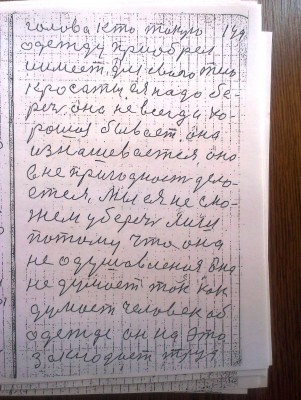 голова кто такую 144
одежду приобрел
и имеет для своего тела
красоты ея надо бе-
речь она не всегда хо-
рошая бывает она
изнашевается она
в не пригодност дело-
ется, мы ея не смо-
жем уберечь
потому что она
не одушавления она
не думает так как
думает человек об
одежде он на это
закладает труд